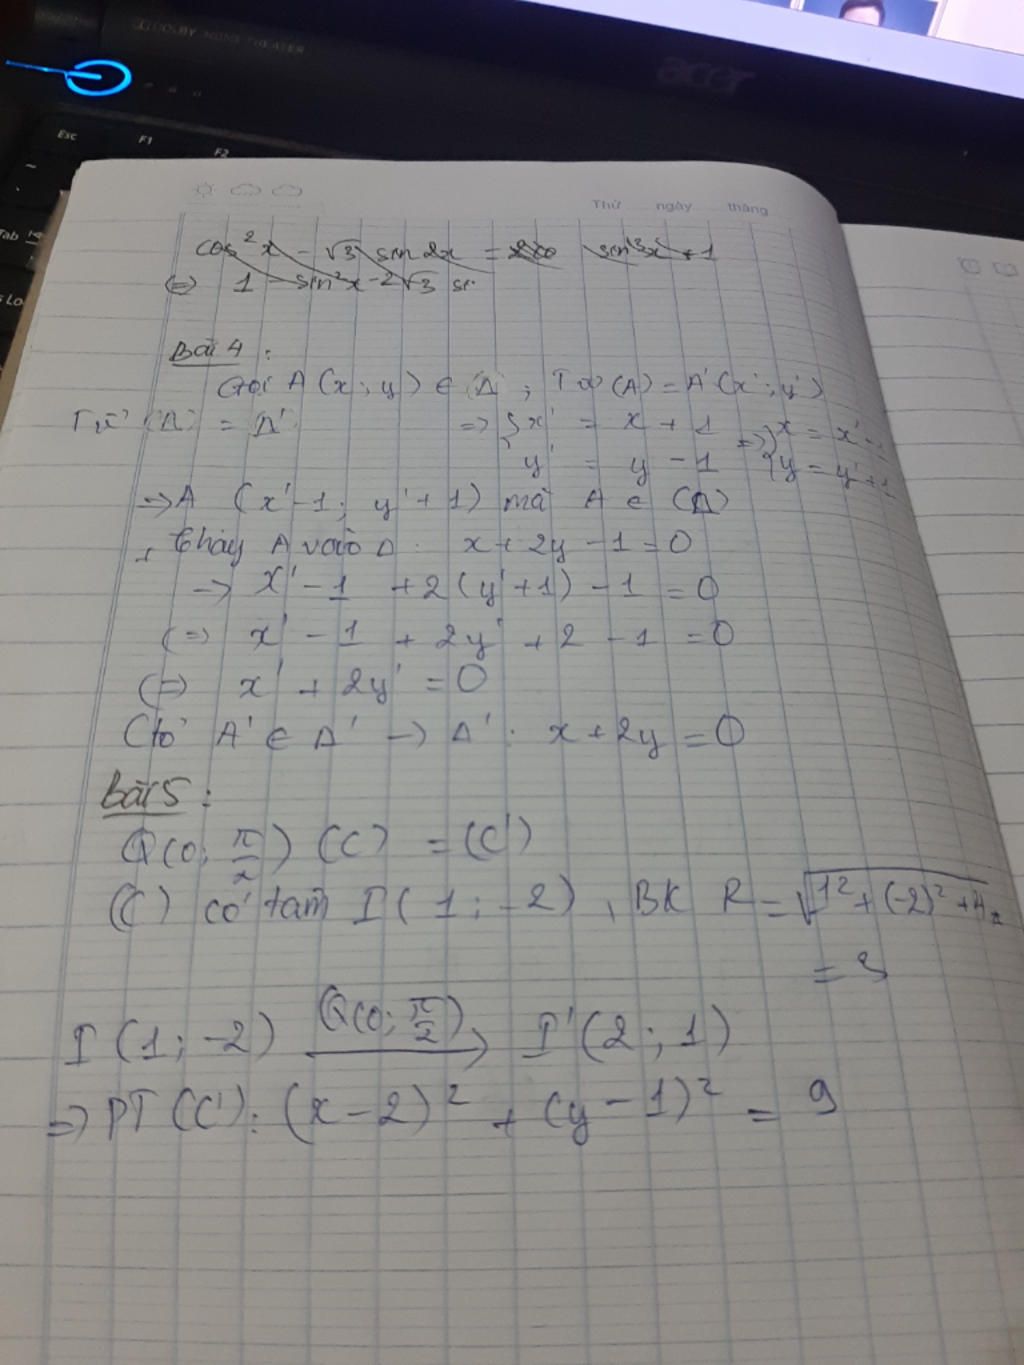 DOLBY HOME THEATER
acer
Esc F1 F2
Tab
Thứ ngày tháng
cos²x - √3 sin 2x = sin³x + 1
(=) 1 - sin²x - 2√3 si
Bài 4 :
Gọi A (x ; y) ∈ (Δ) ; Tv⃗(A) = A'(x' ; y')
Tv⃗ (Δ) = Δ' => { x' = x + 1 => { x = x' - 1
{ y' = y - 1 { y = y' + 1
=> A (x' - 1 ; y' + 1) mà A ∈ (Δ)
+ Thay A vào Δ : x + 2y - 1 = 0
-> x' - 1 + 2(y' + 1) - 1 = 0
(=) x' - 1 + 2y' + 2 - 1 = 0
(=) x' + 2y' = 0
Có A' ∈ Δ' -> Δ' : x + 2y = 0
Bài 5 :
Q(0; π/2) (C) = (C')
(C) có tâm I (1 ; -2) , BK R = √1² + (-2)² + 4
= 3
I (1 ; -2) Q(0; π/2) → I' (2 ; 1)
=> PT (C') : (x - 2)² + (y - 1)² = 9